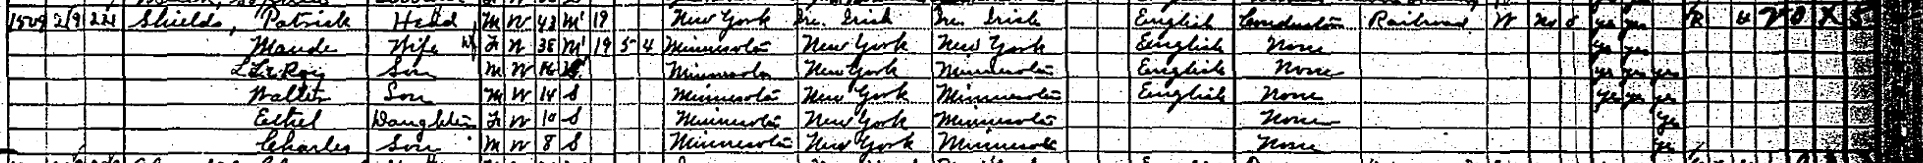 1509 219 221 Shields, Patrick Head M W 43 M1 19 New York Ire. Irish Ire. Irish English Conductor Railroad W no 0 yes yes R 4 2 0 X 5
Maude Wife F W 38 M1 19 5 4 Minnesota New York New York English None yes yes
LeRoy Son M W 16 S Minnesota New York Minnesota English None yes yes yes
Walter Son M W 14 S Minnesota New York Minnesota English None yes yes yes
Ethel Daughter F W 10 S Minnesota New York Minnesota None yes
Charles Son M W 8 S Minnesota New York Minnesota None yes